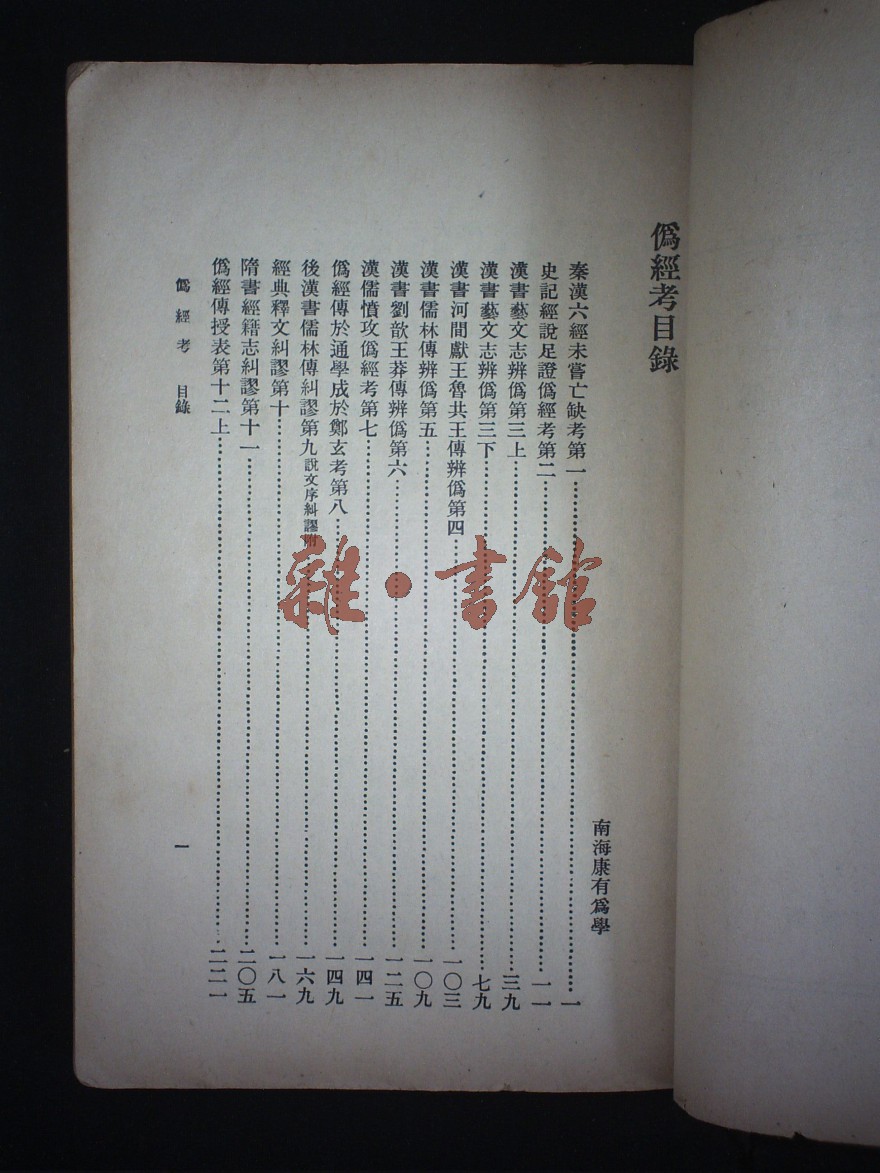 僞經考目錄
南海康有爲學
秦漢六經未嘗亡缺考第一……一
史記經說足證僞經考第二……一一
漢書藝文志辨僞第三上……三九
漢書藝文志辨僞第三下……七九
漢書河間獻王魯共王傳辨僞第四……一〇三
漢書儒林傳辨僞第五……一〇九
漢書劉歆王莽傳辨僞第六……一二五
漢儒憤攻僞經考第七……一四一
僞經傳於通學成於鄭玄考第八……一四九
後漢書儒林傳糾謬第九說文序糾謬附……一六九
經典釋文糾謬第十……一八一
隋書經籍志糾謬第十一……二〇五
僞經傳授表第十二上……二二一
僞經考 目錄
一
雜·書館